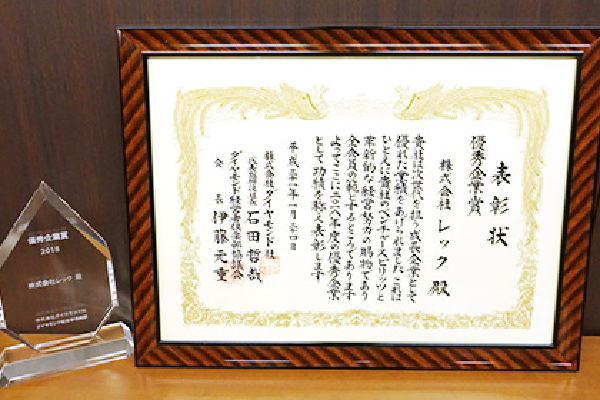 表彰状
優秀企業賞
株式会社 レック 殿
貴社は次世代を担う成長企業として
優れた業績をあげられました これは
ひとえに貴社のベンチャースピリッツと
革新的な経営努力の賜物であり
全会員の範とするところであります
よってここに二〇一八年度の優秀企業
として功績を称え表彰します
株式会社 ダイヤモンド社
代表取締役社長 石田哲哉
ダイヤモンド経営者倶楽部
会長 伊藤元重
優秀企業賞
2018
株式会社レック 殿